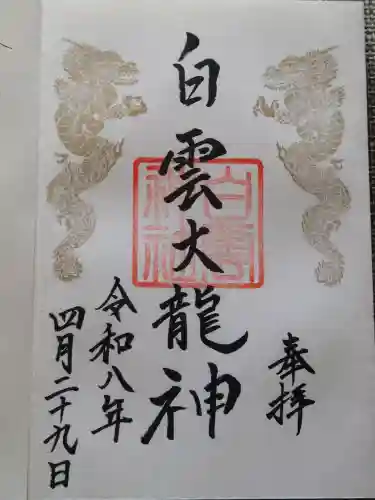 奉拝
白雲大龍神
白雲神社
令和八年
四月二十九日